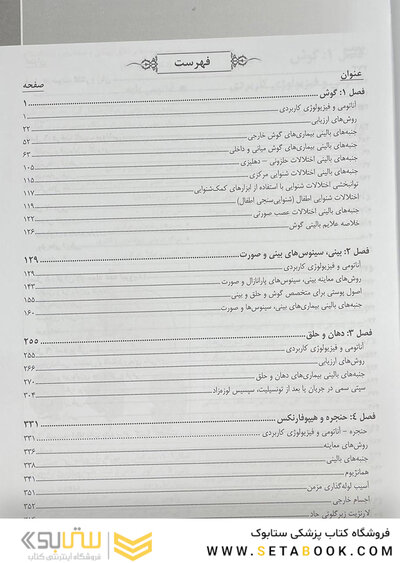 فهرست
عنوان
صفحه
فصل ۱: گوش ۱
آناتومی و فیزیولوژی کاربردی ۱
روش‌های ارزیابی ۲۲
جنبه‌های بالینی بیماری‌های گوش خارجی ۵۲
جنبه‌های بالینی بیماری‌های گوش میانی و داخلی ۶۲
جنبه‌های بالینی اختلالات حلزونی – دهلیزی ۱۰۵
جنبه‌های بالینی اختلالات شنوایی مرکزی ۱۱۵
توانبخشی اختلالات شنوایی با استفاده از ابزارهای کمک‌شنوایی ۱۱۷
اختلالات شنوایی اطفال (شنوایی‌سنجی اطفال) ۱۱۹
جنبه‌های بالینی اختلالات عصب صورتی ۱۲۲
خلاصه علایم بالینی گوش ۱۲۶
فصل ۲: بینی، سینوس‌های بینی و صورت ۱۲۹
آناتومی و فیزیولوژی کاربردی ۱۲۹
روش‌های معاینه بینی، سینوس‌های پارانازال و صورت ۱۴۳
اصول پوستی برای متخصص گوش و حلق و بینی ۱۵۵
جنبه‌های بالینی بیماری‌های بینی، سینوس‌ها و صورت ۱۶۰
فصل ۳: دهان و حلق ۲۵۵
آناتومی و فیزیولوژی کاربردی ۲۵۵
روش‌های ارزیابی ۲۶۶
جنبه‌های بالینی بیماری‌های دهان و حلق ۲۷۰
سپتی سمی در جریان یا بعد از تونسیلیت، سپسیس لوزه‌زاد ۳۰۴
فصل ۴: حنجره و هیپوفارنکس ۳۳۱
حنجره – آناتومی و فیزیولوژی کاربردی ۳۳۱
روش‌های معاینه ۳۳۶
جنبه‌های بالینی ۳۳۸
همانژیوم ۳۴۱
آسیب لوله‌گذاری مزمن ۳۵۱
اجسام خارجی ۳۵۲
لارنژیت زیرگلوتی حاد
فروشگاه کتاب پزشکی ستابوک
WWW.SETABOOK.COM
ستابوک
فروشگاه اینترنتی کتاب